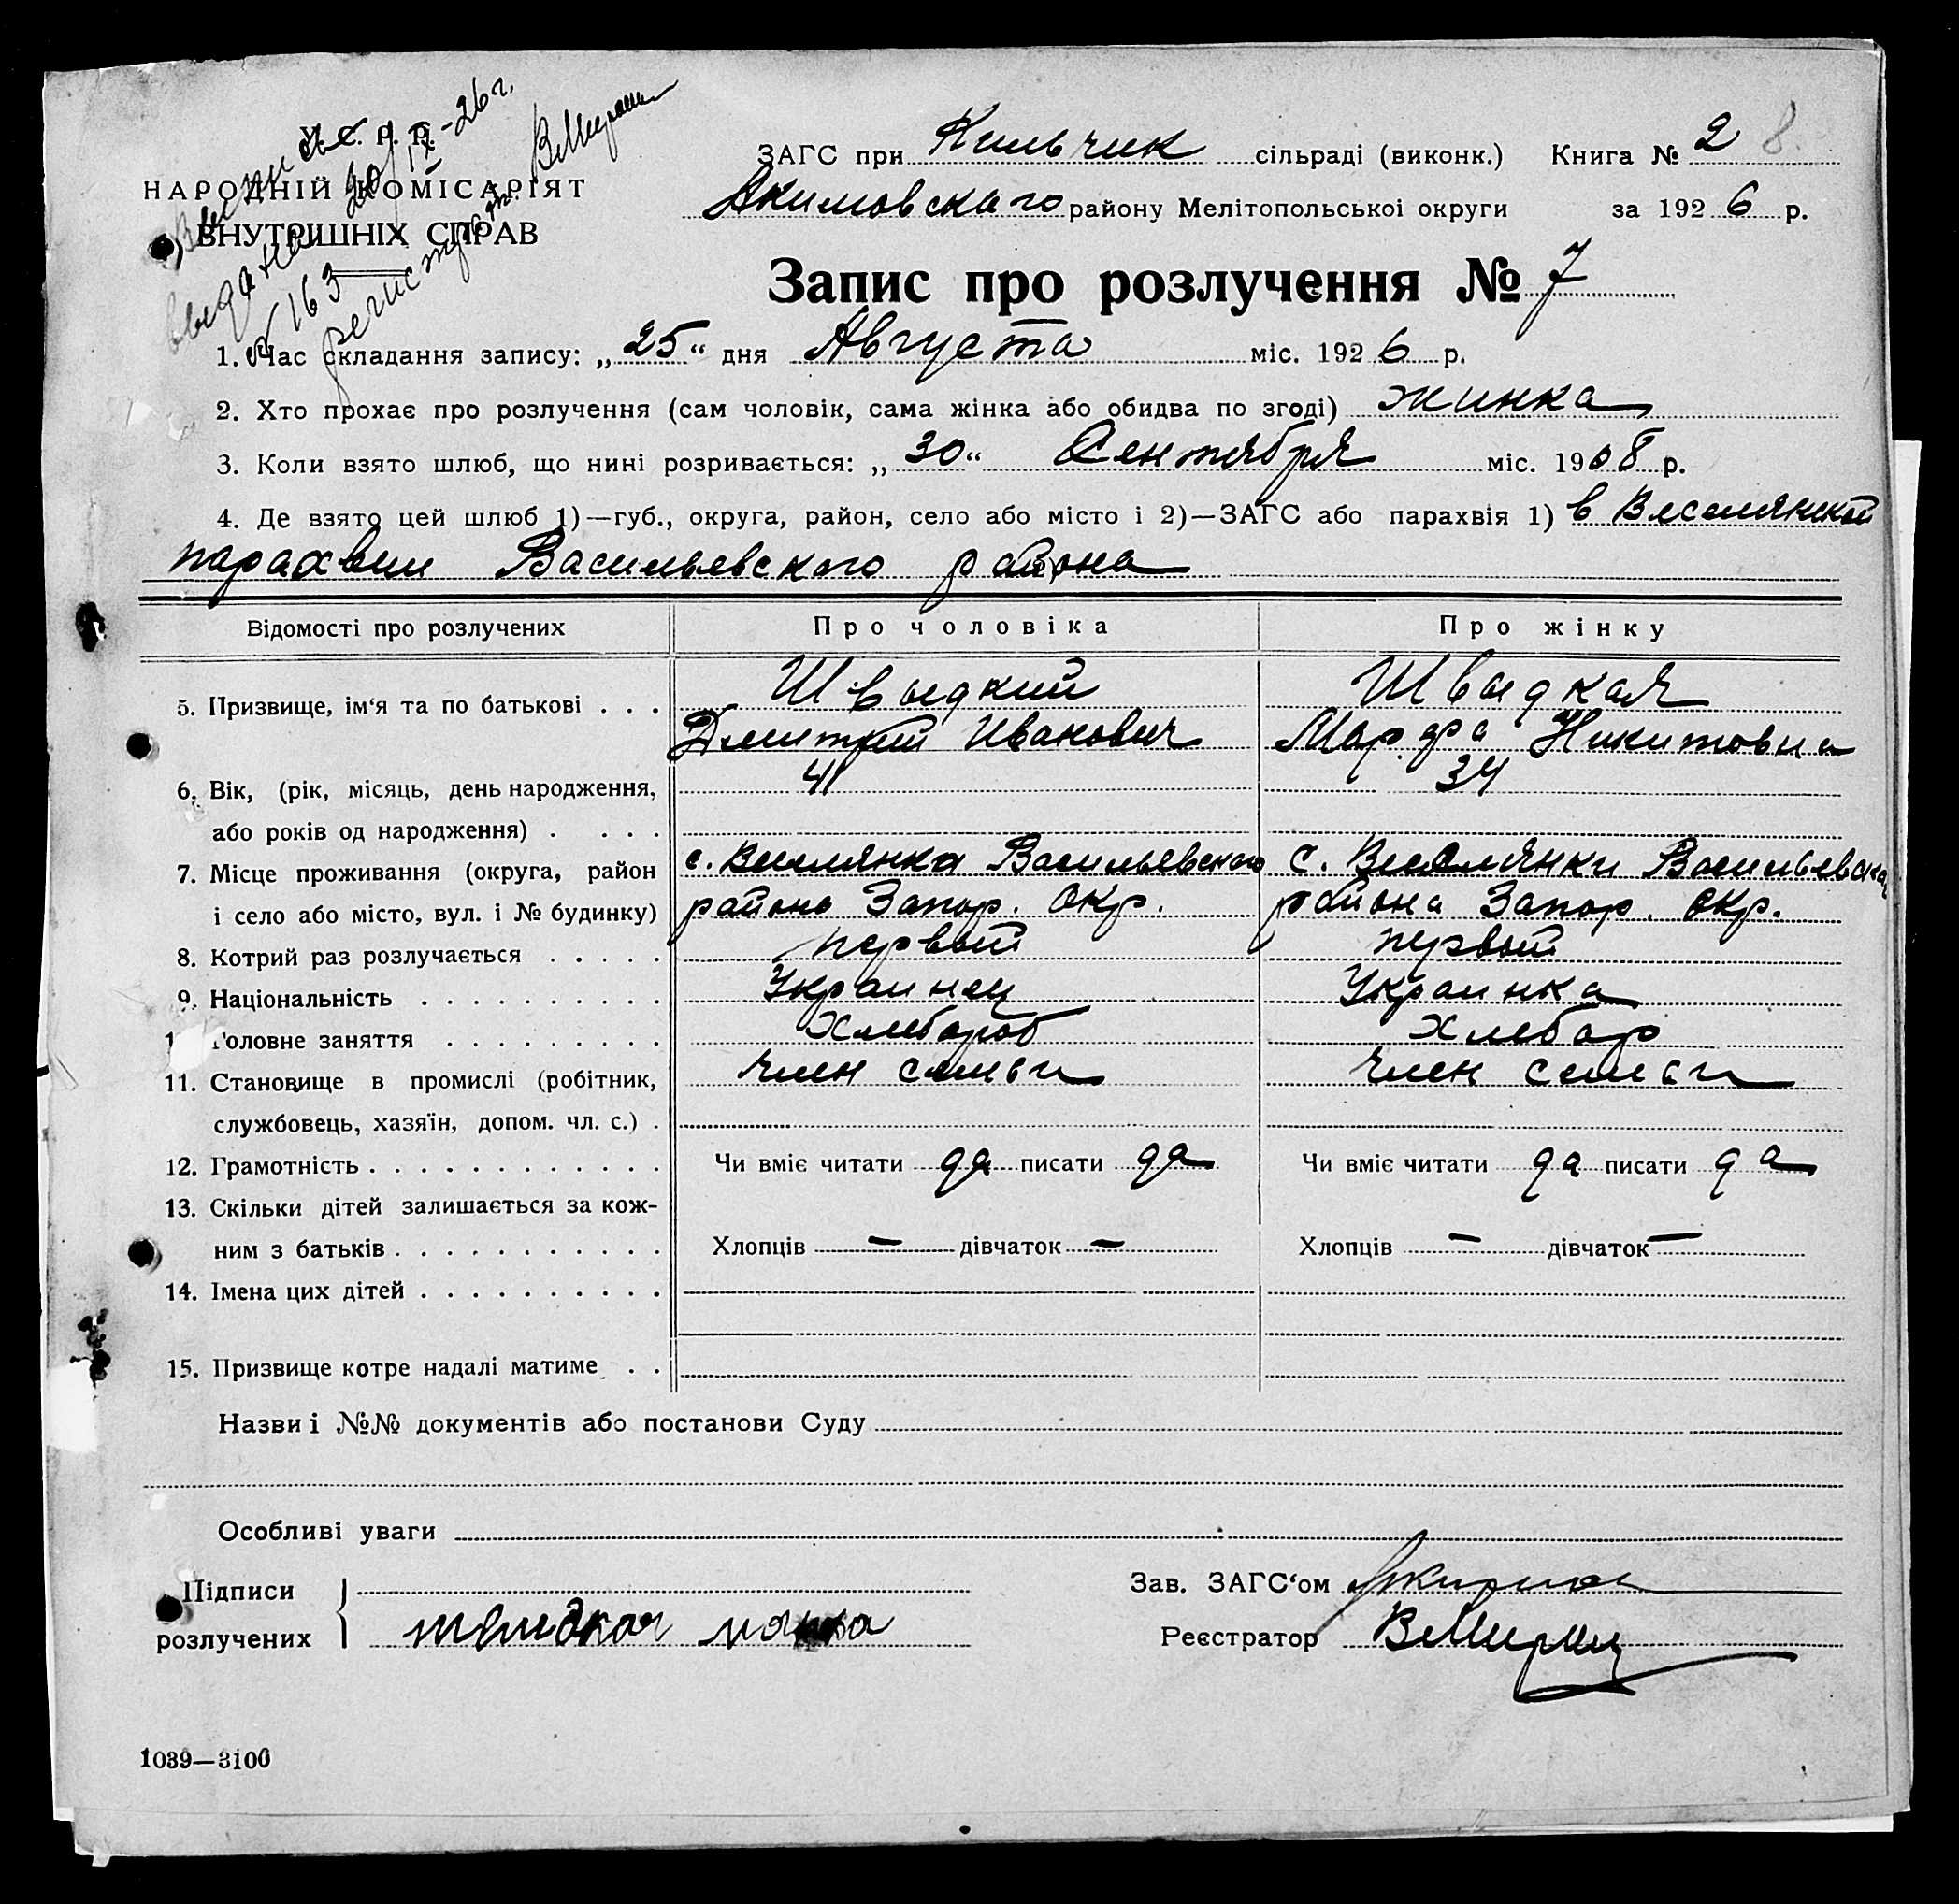 У. С. Р. Р.
НАРОДНІЙ КОМІСАРІЯТ
ВНУТРІШНІХ СПРАВ
Выпись выдана 20/IX-26 г.
№ 163
регистрат.
ЗАГС при Кильчик сільраді (виконк.) Книга № 2 8.
Акимовскаго району Мелітопольської округи за 1926 р.
Запис про розлучення № 7
1. Час складання запису: „25“ дня Августа міс. 1926 р.
2. Хто прохає про розлучення (сам чоловік, сама жінка або обидва по згоді) жинка
3. Коли взято шлюб, що нині розривається: „30“ Сентября міс. 1908 р.
4. Де взято цей шлюб 1)—губ., округа, район, село або місто і 2)—ЗАГС або парахвія 1) в Веселянской
парахвии Васильевского района
Відомості про розлучених Про чоловіка Про жінку
5. Призвище, ім‘я та по батькові . . . Швыдкий Швыдкая
Дмитрий Иванович Марфа Никитовна
6. Вік, (рік, місяць, день народження, 41 34
або років од народження) . . . .
7. Місце проживання (округа, район с. Веселянка Васильевского с. Веселянки Васильевска
і село або місто, вул. і № будинку) района Запор. Окр. района Запор. Окр.
8. Котрий раз розлучається . . . . . первый первый
9. Національність . . . . . . . . . . Украинец Украинка
1 Головне заняття . . . . . . . . . Хлебороб Хлебор
11. Становище в промислі (робітник, член семьи член семьи
службовець, хазяїн, допом. чл. с.) .
12. Грамотність . . . . . . . . . . . . Чи вміє читати да писати да Чи вміє читати да писати да
13. Скільки дітей залишається за кож-
ним з батьків . . . . . . . . . . . Хлопців — дівчаток — Хлопців — дівчаток —
14. Імена цих дітей . . . . . . . . . .
15. Призвище котре надалі матиме . .
Назви і №№ документів або постанови Суду
Особливі уваги
Підписи Зав. ЗАГС‘ом
розлучених Швидкая Реєстратор
1039—3100